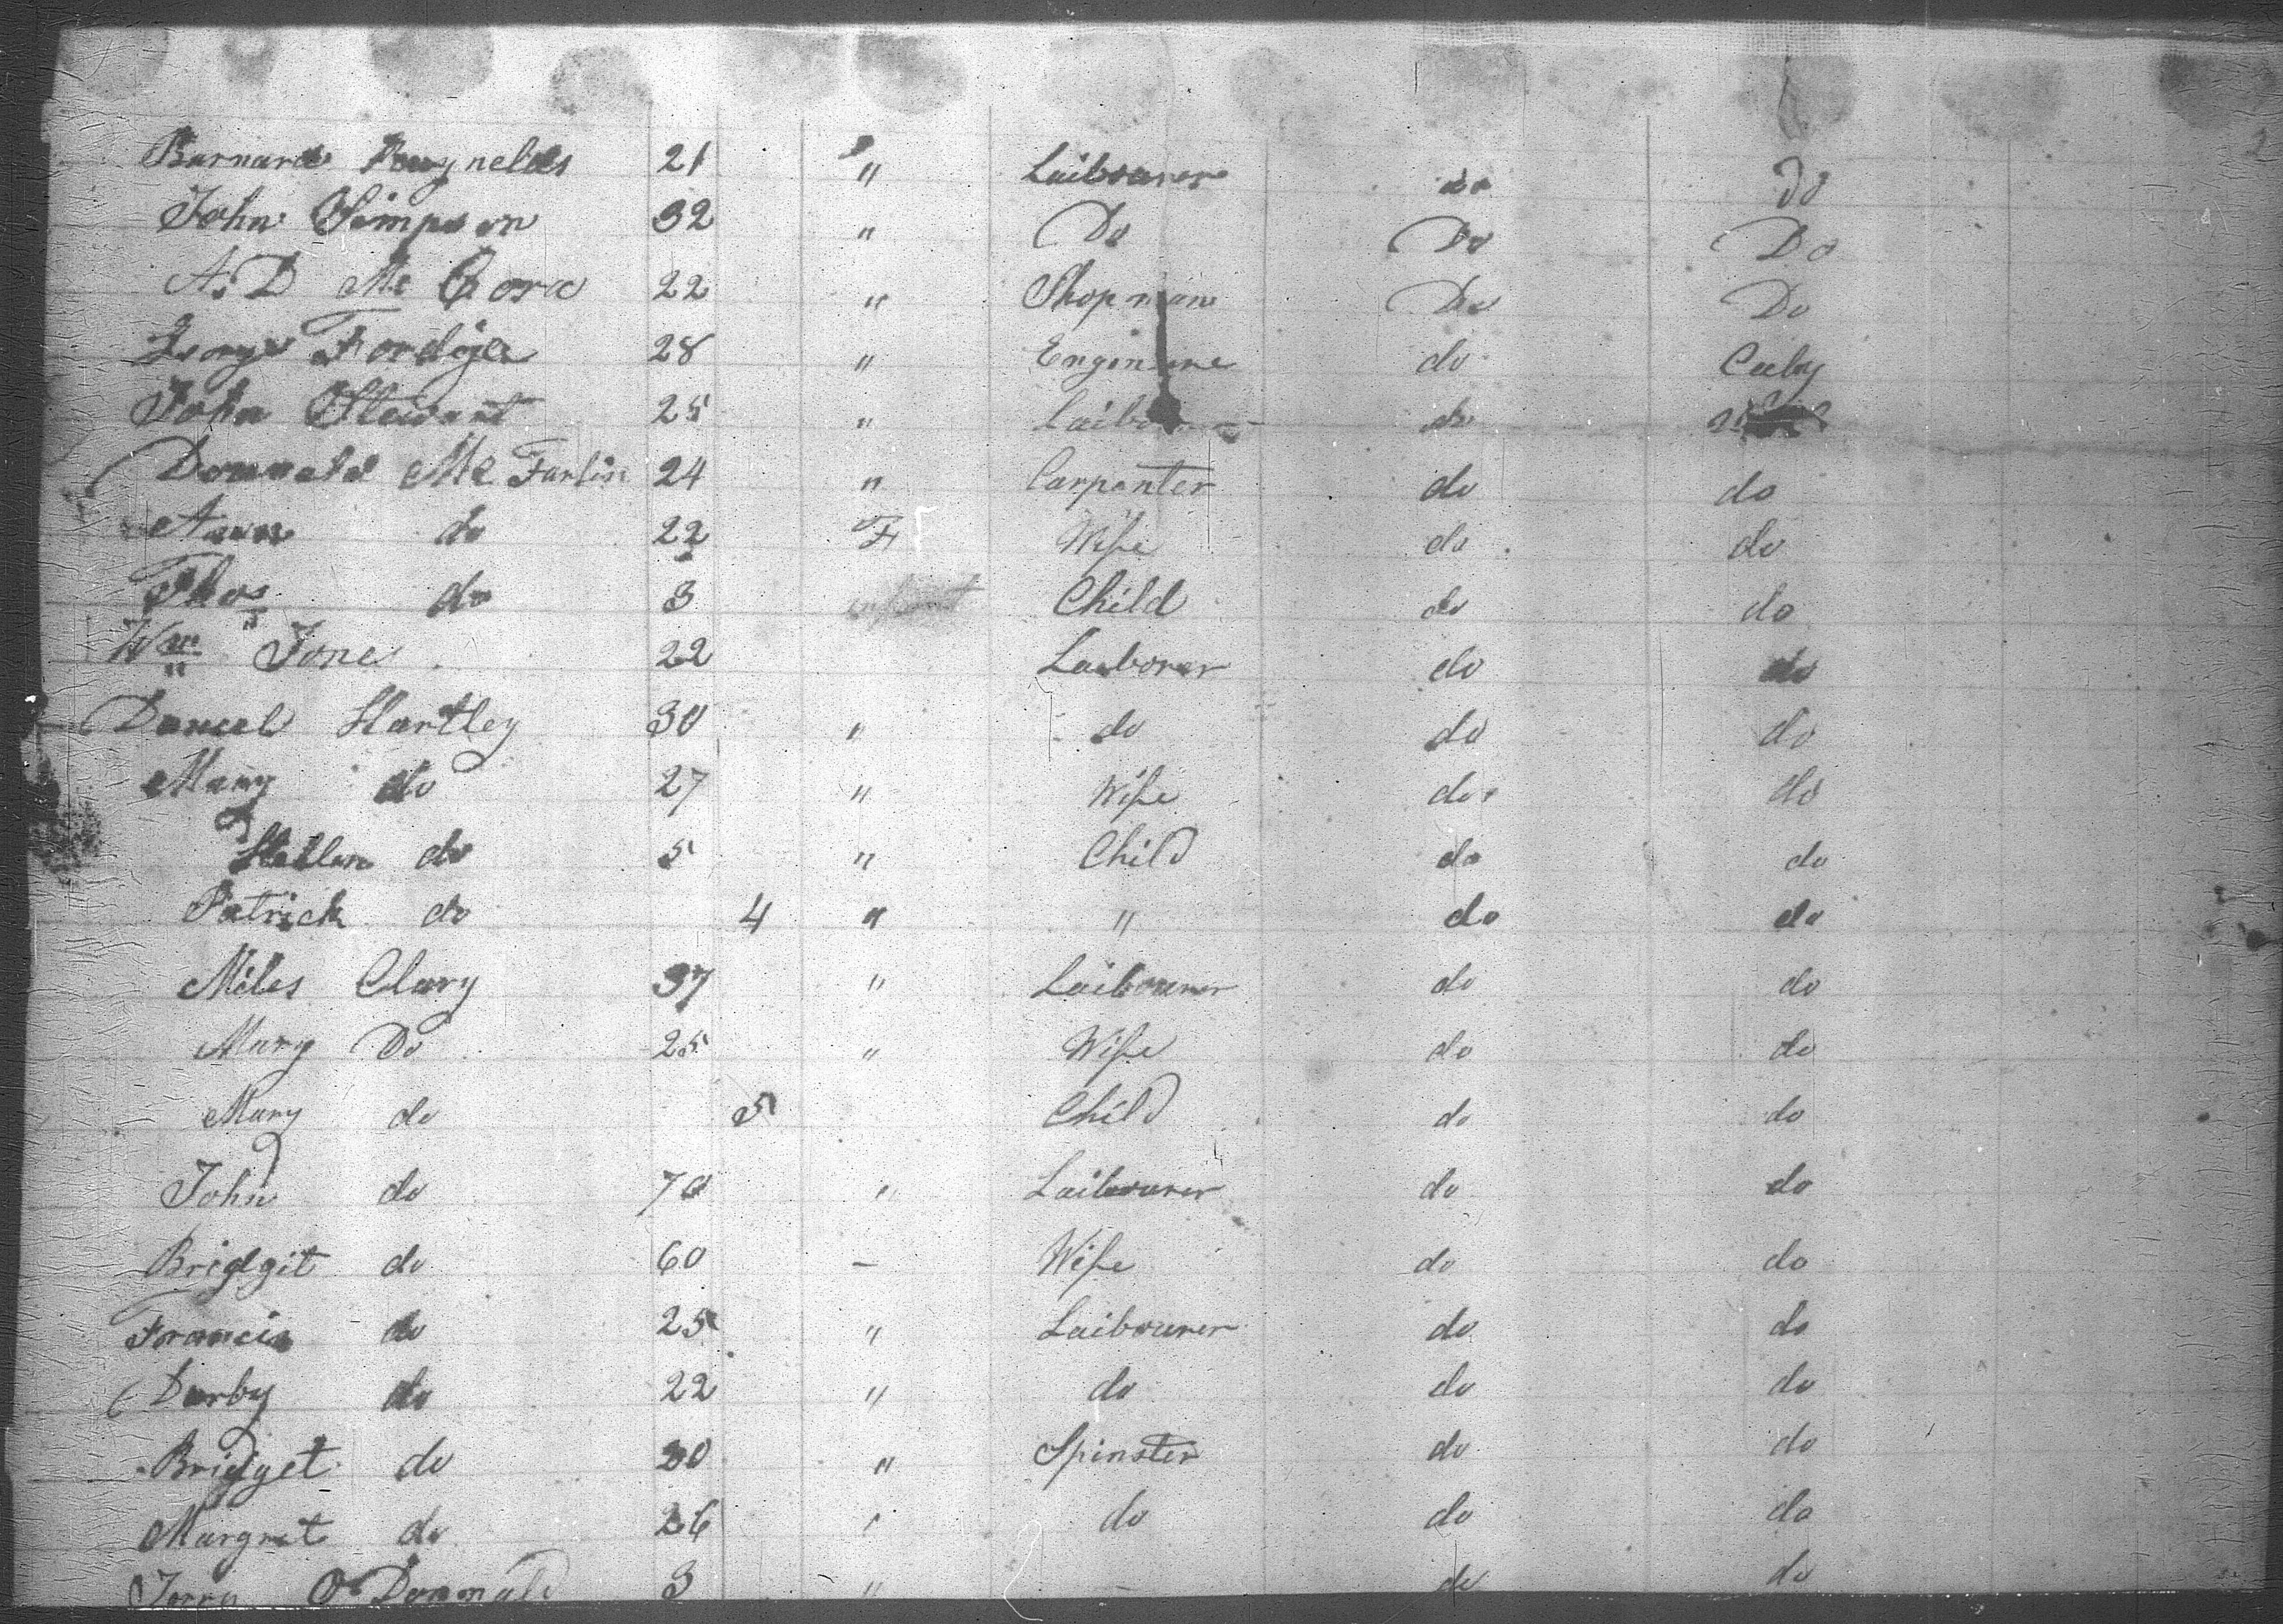 Barnard Raynelds 21 " Laibourer do do
John Simpson 32 " Do Do Do
A. D Mc Cora 22 " Shopman Do Do
George Fordige 28 " Enginine do Cuby
John Stewart 25 " Laibourer do
Dounald Mc Farlin 24 " Carpenter do do
Ann do 22 F Wife do do
Thos do 3 infant Child do do
Wm Jone 22 Laiborer do do
Daneel Hartley 30 " do do do
Mary do 27 " Wife do do
do 5 " Child do do
Patrick do 4 " " do do
Miles Clary 37 " Laibourer do do
Mary Do 25 " Wife do do
Mary do 5 Child do do
John do 70 " Laibourer do do
Bridgit do 60 – Wife do do
Francis do 25 " Laibourer do do
Darby do 22 " do do do
Bridget do 20 " Spinster do do
Margret do 26 " do do do
O Donnald 3 " do do